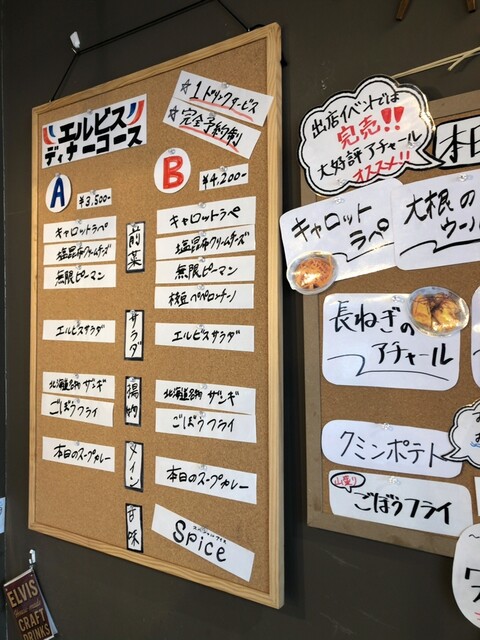 エルビス
ディナーコース
☆1ドリンクサービス
☆完全予約制
A
¥3,500-
キャロットラペ
塩昆布クリームチーズ
無限ピーマン
エルビスサラダ
北海道名物 ザンギ
ごぼうフライ
本日のスープカレー
前菜
サラダ
揚物
メイン
甘味
B
¥4,200-
キャロットラペ
塩昆布クリームチーズ
無限ピーマン
枝豆ペペロンチーノ
エルビスサラダ
北海道名物 ザンギ
ごぼうフライ
本日のスープカレー
Spice
出店イベントでは
完売!!
大好評アチャール
オススメ!!
本日
キャロット
ラペ
大根の
長ねぎの
アチャール
クミンポテト
山盛り
ごぼうフライ
ELVIS
CRAFT
DRINKS